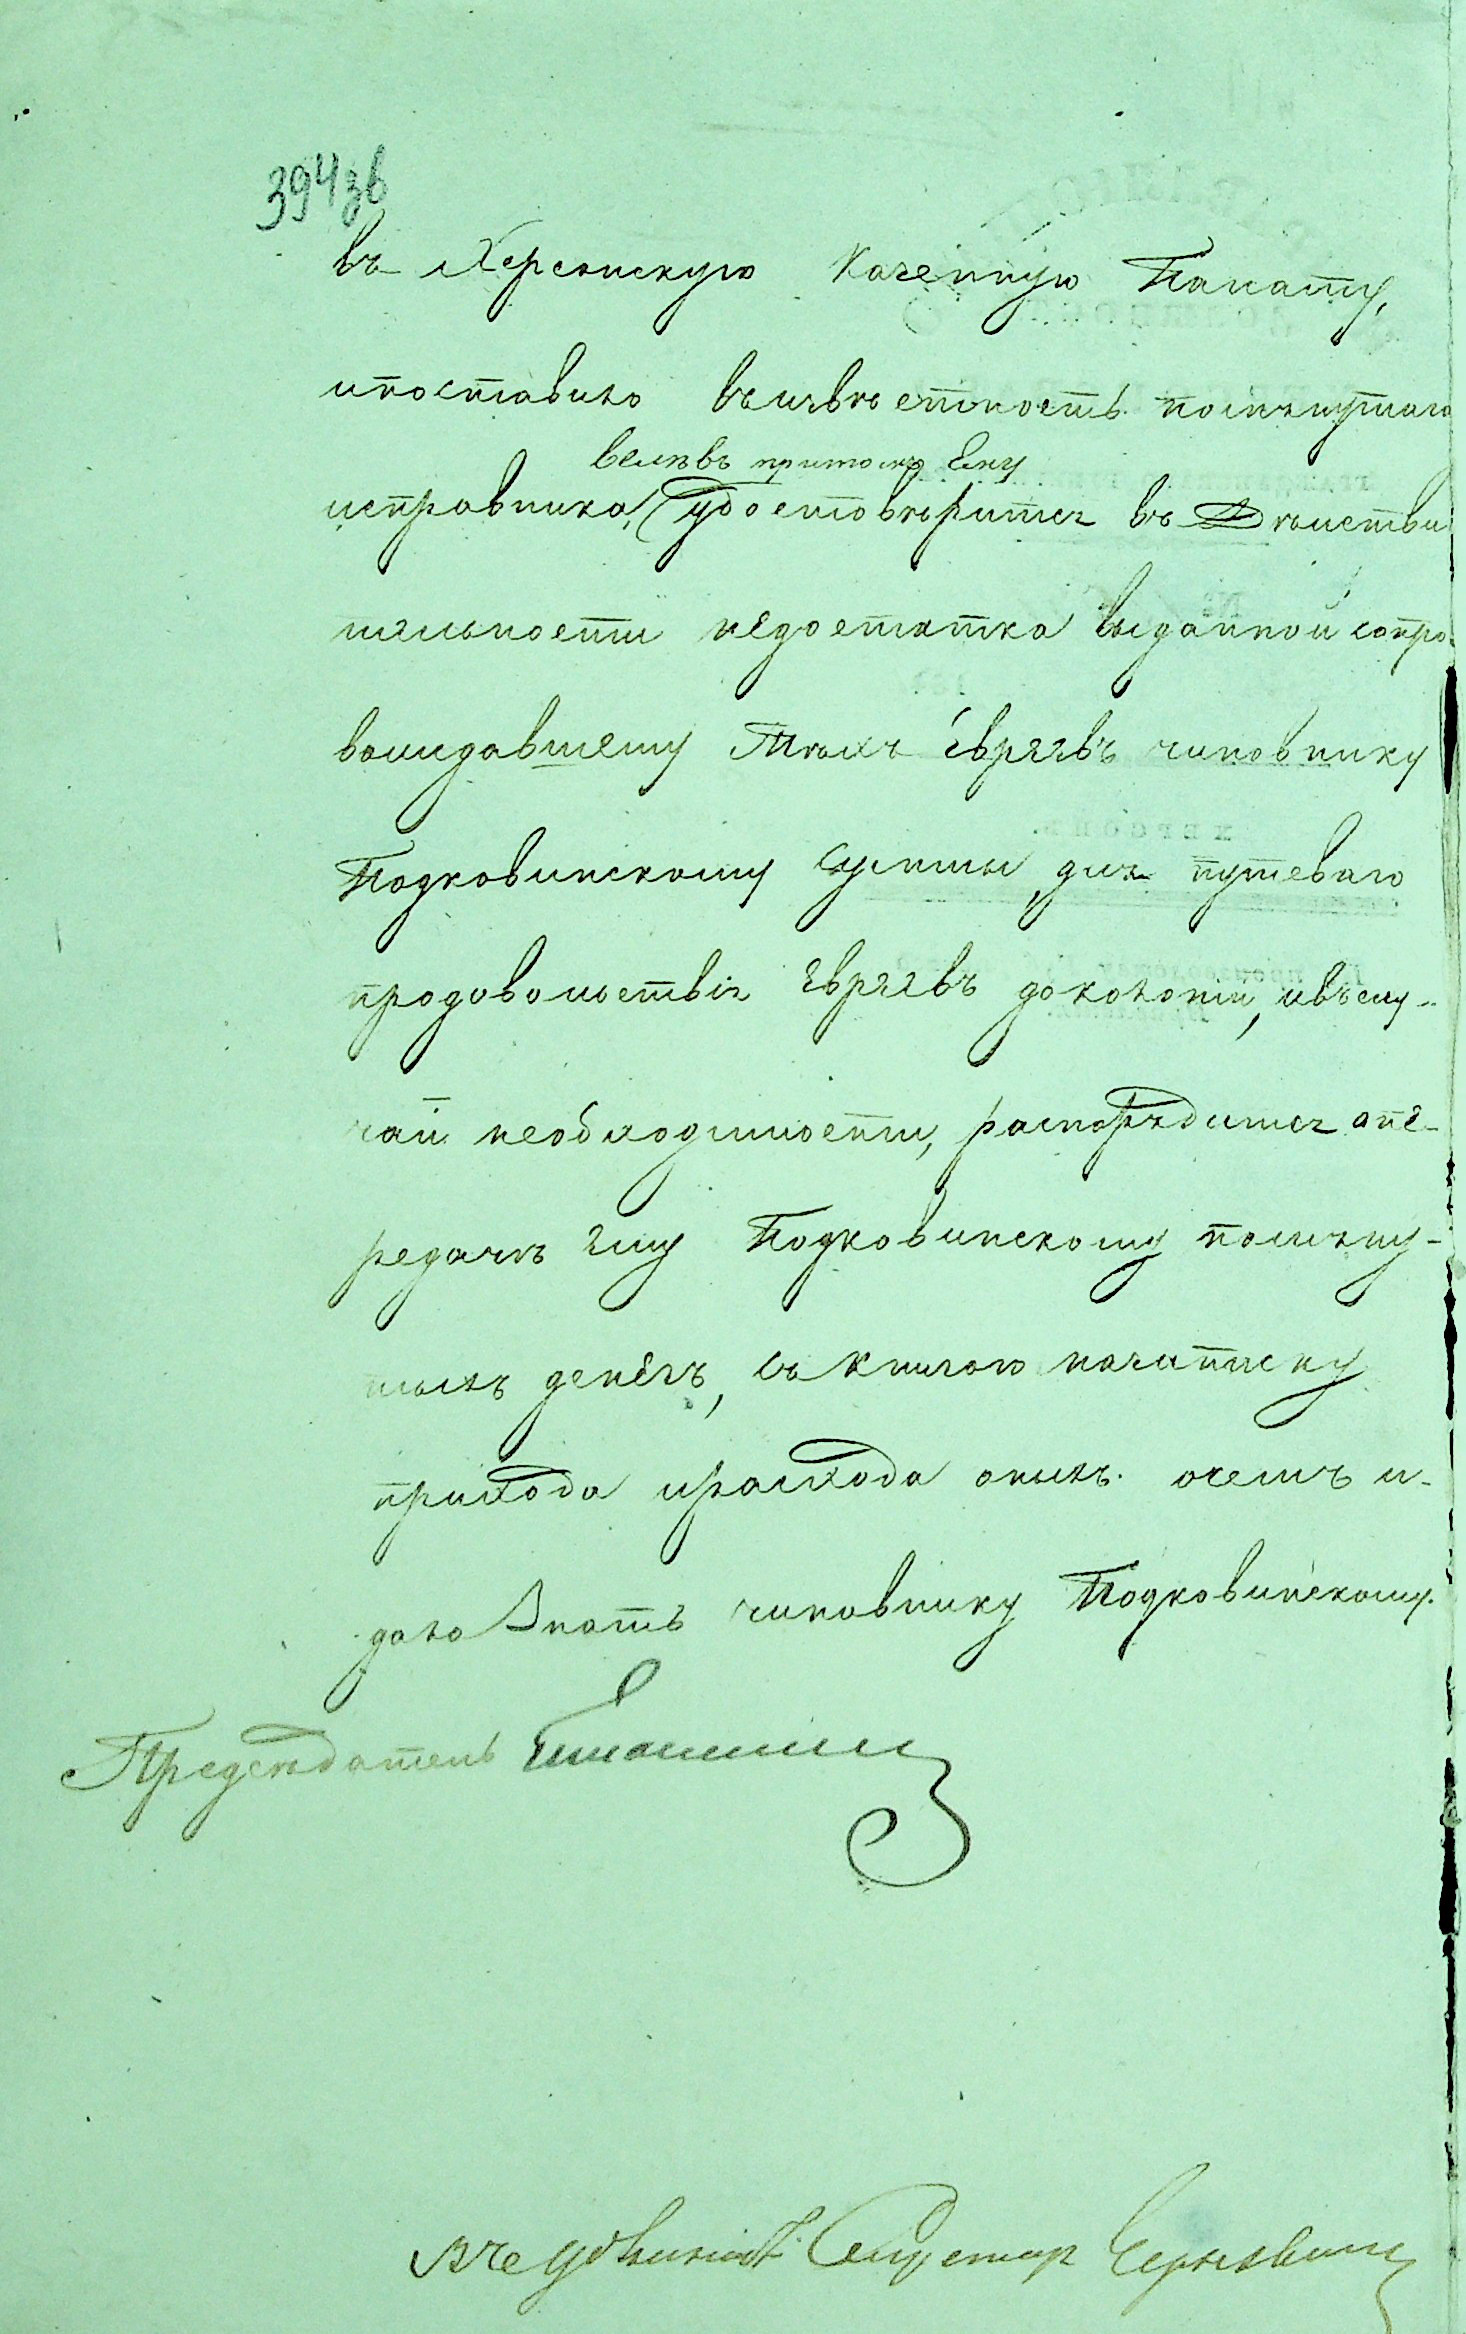 394зв
въ Херсонскую Казенную Палату,
и поставило въ извѣстность помянутаго
велѣвъ притомъ Ему
исправника, удостовѣрится въ дѣистви
тельности недостатка выданной сопро
вождавшему тѣхъ Евреевъ чиновнику
Подковинскому суммы для путеваго
продовольствія Евреевъ до колоніи, и въ слу-
чаи необходимости, распорядится о пе-
редачѣ ему Подковинскому помяну-
тыхъ денегъ, съ книгою на записку
прихода и расхода оныхъ. о чемъ и
дало знать чиновнику Подковинскому.
Предсѣдатель
Секретарь